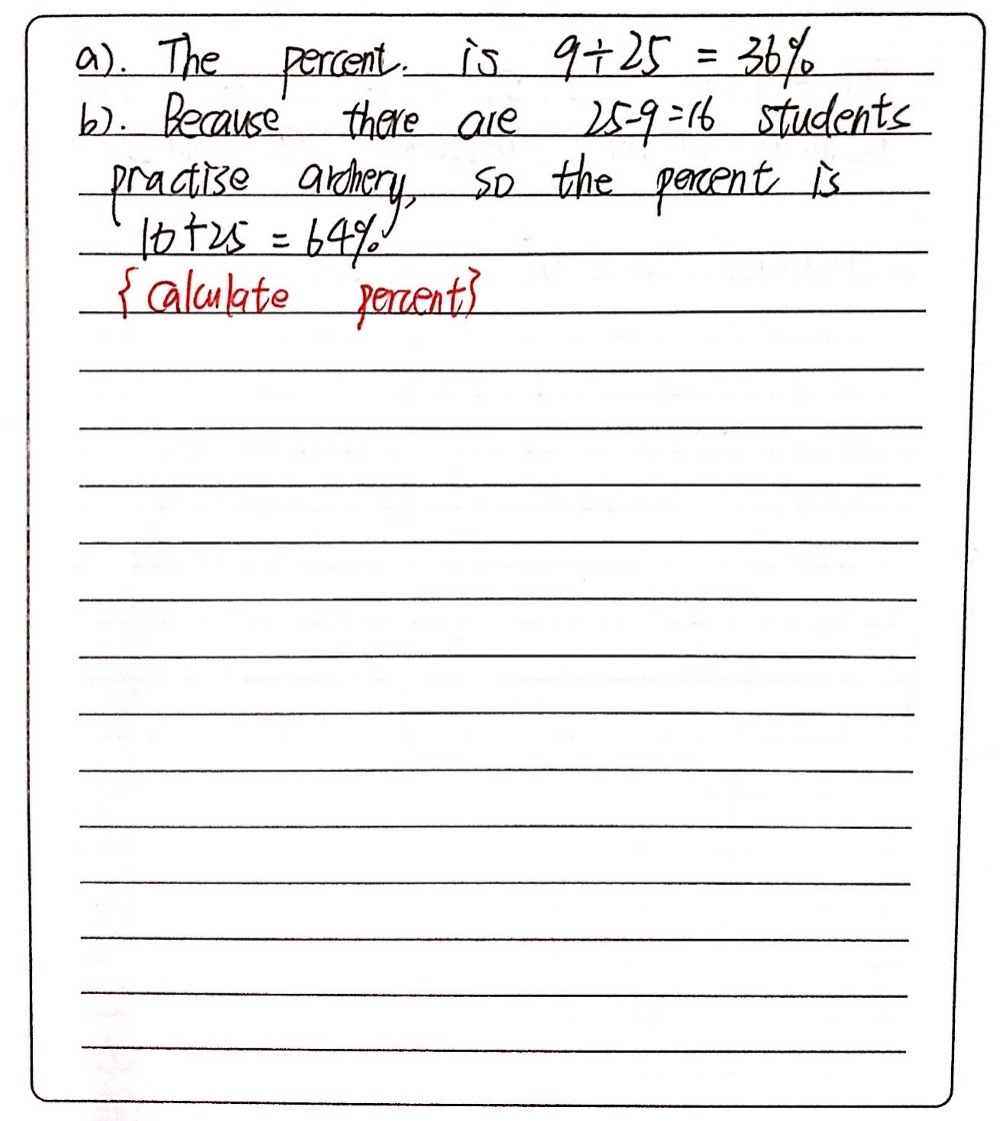 a). The percent. is 9÷25 = 36%
b). Because there are 25-9=16 students
practise archery, so the percent is
16÷25 = 64%
{calculate percent}